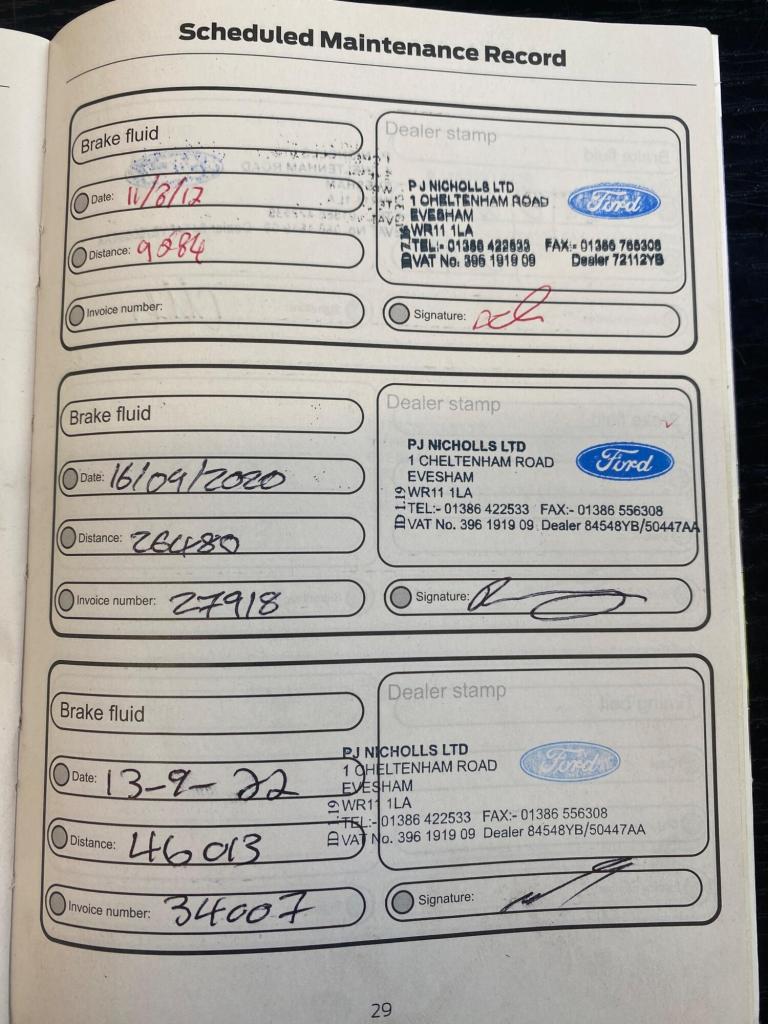 Scheduled Maintenance Record
Brake fluid
Date: 11/8/17
Distance: 9884
Invoice number:
Dealer stamp
PJ NICHOLLS LTD
1 CHELTENHAM ROAD
EVESHAM
WR11 1LA
TEL:- 01386 422533 FAX:- 01386 765308
VAT No. 396 1919 09 Dealer 72112YB
Ford
Signature:
Brake fluid
Date: 16/09/2020
Distance: 26480
Invoice number: 27918
Dealer stamp
PJ NICHOLLS LTD
1 CHELTENHAM ROAD
EVESHAM
WR11 1LA
TEL:- 01386 422533 FAX:- 01386 556308
VAT No. 396 1919 09 Dealer 84548YB/50447AA
ID 1.19
Ford
Signature:
Brake fluid
Date: 13-9-22
Distance: 46013
Invoice number: 34007
Dealer stamp
PJ NICHOLLS LTD
1 CHELTENHAM ROAD
EVESHAM
WR11 1LA
TEL:- 01386 422533 FAX:- 01386 556308
VAT No. 396 1919 09 Dealer 84548YB/50447AA
ID 1.19
Ford
Signature:
29